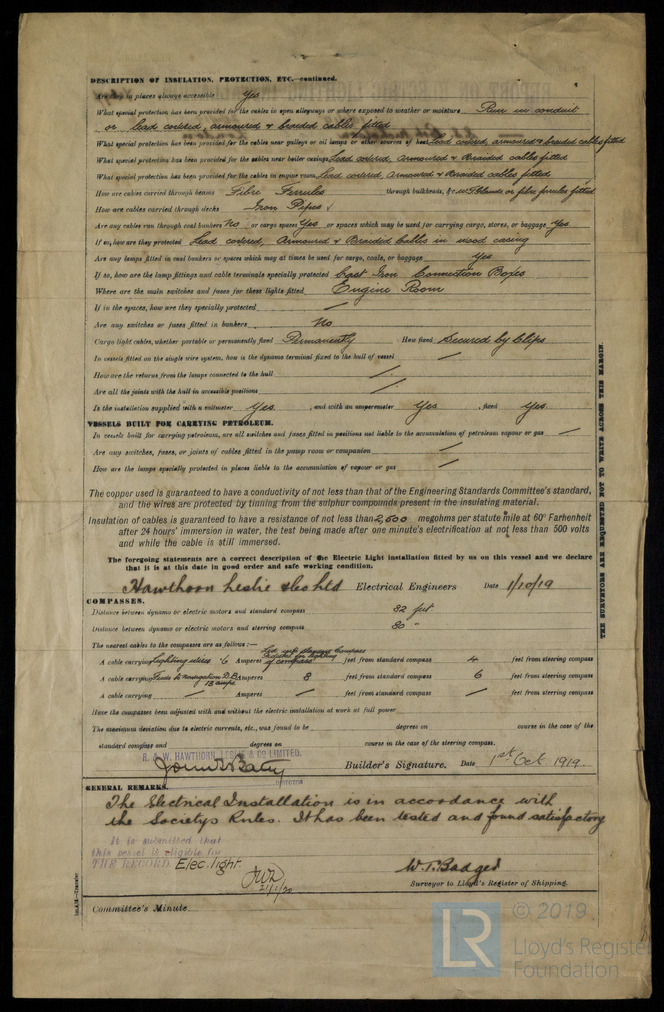 DESCRIPTION OF INSULATION, PROTECTION, ETC.—continued.
Are they in places always accessible Yes
What special protection has been provided for the cables in open alleyways or where exposed to weather or moisture Run in conduit
or lead covered, armoured & braided cables fitted
What special protection has been provided for the cables near galleys or oil lamps or other sources of heat Lead covered, armoured & braided cables fitted
What special protection has been provided for the cables near boiler casings Lead covered, Armoured & Braided cables fitted
What special protection has been provided for the cables in engine room Lead covered, Armoured & Braided cables fitted
How are cables carried through beams Fibre Ferrules through bulkheads, &c. W.T. Glands or fibre ferrules fitted
How are cables carried through decks Iron Pipes
Are any cables run through coal bunkers No or cargo spaces Yes or spaces which may be used for carrying cargo, stores, or baggage Yes
If so, how are they protected Lead covered, Armoured & Braided Cables in wood casing
Are any lamps fitted in coal bunkers or spaces which may at times be used for cargo, coals, or baggage Yes
If so, how are the lamp fittings and cable terminals specially protected Cast Iron Connection Boxes
Where are the main switches and fuses for these lights fitted Engine Room
If in the spaces, how are they specially protected /
Are any switches or fuses fitted in bunkers No
Cargo light cables, whether portable or permanently fixed Permanently How fixed Secured by Clips
In vessels fitted on the single wire system, how is the dynamo terminal fixed to the hull of vessel /
How are the returns from the lamps connected to the hull /
Are all the joints with the hull in accessible positions /
Is the installation supplied with a voltmeter Yes , and with an amperemeter Yes , fixed Yes.
VESSELS BUILT FOR CARRYING PETROLEUM.
In vessels built for carrying petroleum, are all switches and fuses fitted in positions not liable to the accumulation of petroleum vapour or gas /
Are any switches, fuses, or joints of cables fitted in the pump room or companion /
How are the lamps specially protected in places liable to the accumulation of vapour or gas /
The copper used is guaranteed to have a conductivity of not less than that of the Engineering Standards Committee's standard,
and the wires are protected by tinning from the sulphur compounds present in the insulating material.
Insulation of cables is guaranteed to have a resistance of not less than 2,600 megohms per statute mile at 60° Farhenheit
after 24 hours' immersion in water, the test being made after one minute's electrification at not less than 500 volts
and while the cable is still immersed.
The foregoing statements are a correct description of the Electric Light installation fitted by us on this vessel and we declare
that it is at this date in good order and safe working condition.
Hawthorn Leslie & Co Ltd Electrical Engineers Date 1/10/19
COMPASSES.
Distance between dynamo or electric motors and standard compass 82 feet
Distance between dynamo or electric motors and steering compass 80 "
The nearest cables to the compasses are as follows:—
A cable carrying Lighting wires 6 Amperes feet from standard compass 4 feet from steering compass
A cable carrying Feeds to navigation D.B. 13 amps Amperes 8 feet from standard compass 6 feet from steering compass
A cable carrying / Amperes / feet from standard compass / feet from steering compass
Have the compasses been adjusted with and without the electric installation at work at full power
The maximum deviation due to electric currents, etc., was found to be degrees on course in the case of the
standard compass and degrees on course in the case of the steering compass.
R. & W. HAWTHORN, LESLIE & CO LIMITED.
Builder's Signature. Date 1st Oct 1919.
DIRECTOR
GENERAL REMARKS.
The Electrical Installation is in accordance with
the Societys Rules. It has been tested and found satisfactory
It is submitted that
this vessel is eligible for
THE RECORD Elec. light.
21/1/20
W. T. Badger
Surveyor to Lloyd's Register of Shipping.
Committee's Minute
THE SURVEYORS ARE REQUESTED NOT TO WRITE ACROSS THIS MARGIN.
© 2019
LR
Lloyd's Register
Foundation